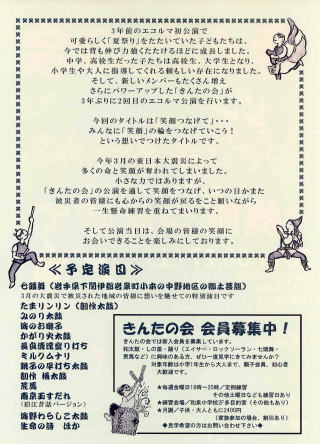 3年前のエコルマ初公演で
可愛らしく「夏祭り」をたたいていた子どもたちは、
今では背も伸び力強くたたけるほどに成長しました。
中学、高校生だった子たちは高校生、大学生となり、
小学生や大人に指導してくれる頼もしい存在になりました。
そして、新しいメンバーもたくさん増え
さらにパワーアップした「きんたの会」が
3年ぶりに2回目のエコルマ公演を行います。
今回のタイトルは「笑顔つなげて」・・・
みんなに「笑顔」の輪をつなげていこう!
という想いでつけたタイトルです。
今年3月の東日本大震災によって
多くの命と笑顔が奪われてしまいました。
小さな力ではありますが、
「きんたの会」の公演を通して笑顔をつなげ、いつの日かまた
被災者の皆様にも心からの笑顔が戻ることを願いながら
一生懸命練習を重ねてまいります。
そして公演当日は、会場の皆様の笑顔に
お会いできることを楽しみにしております。
≪予定演目≫
七頭舞(岩手県下閉伊郡岩泉町小本の中野地区の郷土芸能)
3月の大震災で被災された地域の皆様に想いを馳せての特別演目です
たまリンリン(創作太鼓)
みのり太鼓
海のお囃子
かがり火太鼓
長良流盛り打ち
ミルクムナリ
銚子の早打太鼓
創作 橋太鼓
荒馬
南京玉すだれ
(狛江昔話バージョン)
海野わらしこ太鼓
生命の詩 ほか
きんたの会 会員募集中!
きんたの会では新入会員を募集しています。
和太鼓・しの笛・踊り(エイサー・ロックソーラン・七頭舞・
荒馬など)に興味のある方、ぜひ一度見学に来てみませんか?
対象年齢は小学1年生から大人まで、親子会員、初心者
大歓迎です。
★毎週金曜日18時～20時/定例練習
その他土曜日なども練習日あり
★練習会場/和泉小学校2F多目的室(その他もあり)
★月謝/子供・大人ともに2400円
(家族参加の場合、割引あり)
●見学希望の方はお問い合わせ下さい。